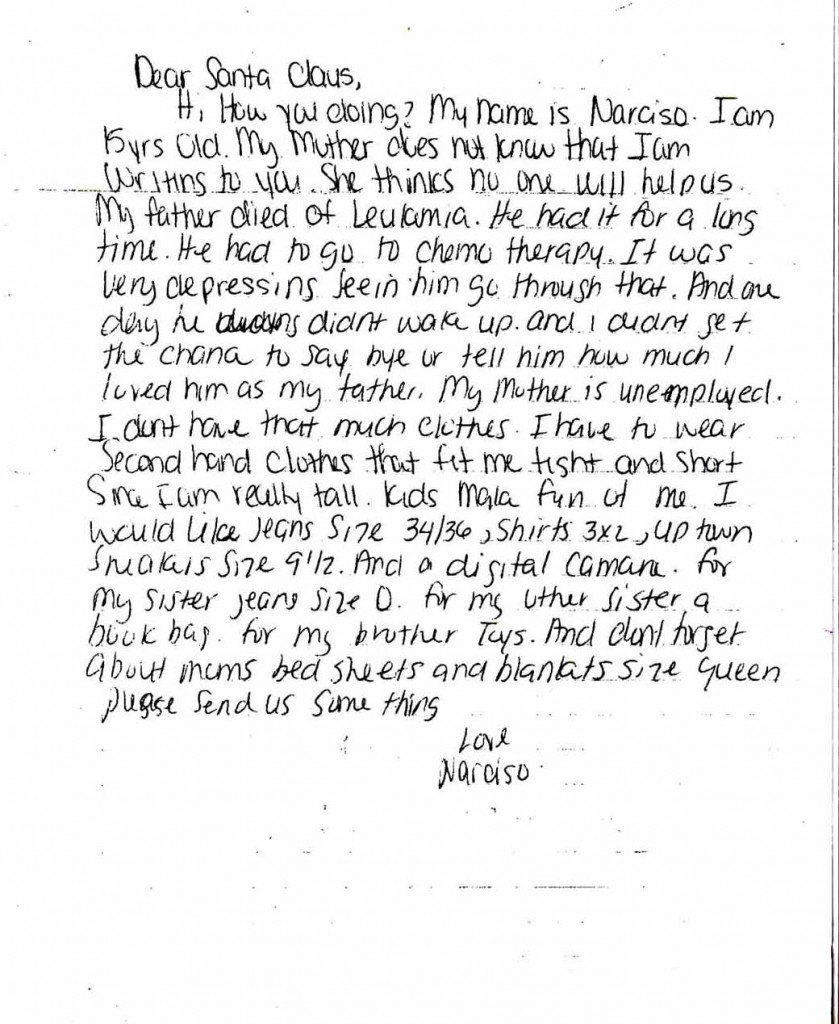 Dear Santa Claus,
Hi, How you doing? My name is Narciso. I am
15yrs Old. My Muther does not know that I am
Writins to you. She thincs no one will help us.
My father died of Leukamia. He had it for a long
time. He had to go to chemo therapy. It was
very depressins seein him go through that. And one
day he didnt wake up. and I didnt get
the chana to say bye or tell him how much I
loved him as my father. My Mother is unemployed.
I dont have that much clothes. I have to wear
Second hand Clothes that fit me tight and short
Sinc I am really tall. Kids Maka fun of me. I
would like Jeans Size 34/36, Shirts 3x2, up town
Sneakers Size 9 1/2. And a digital Camara. for
my sister jeans size 0. for my uther sister a
book bag. for my brother Toys. And dont forget
About moms bed sheets and blankats size queen
please send us some thing
Love
Narciso